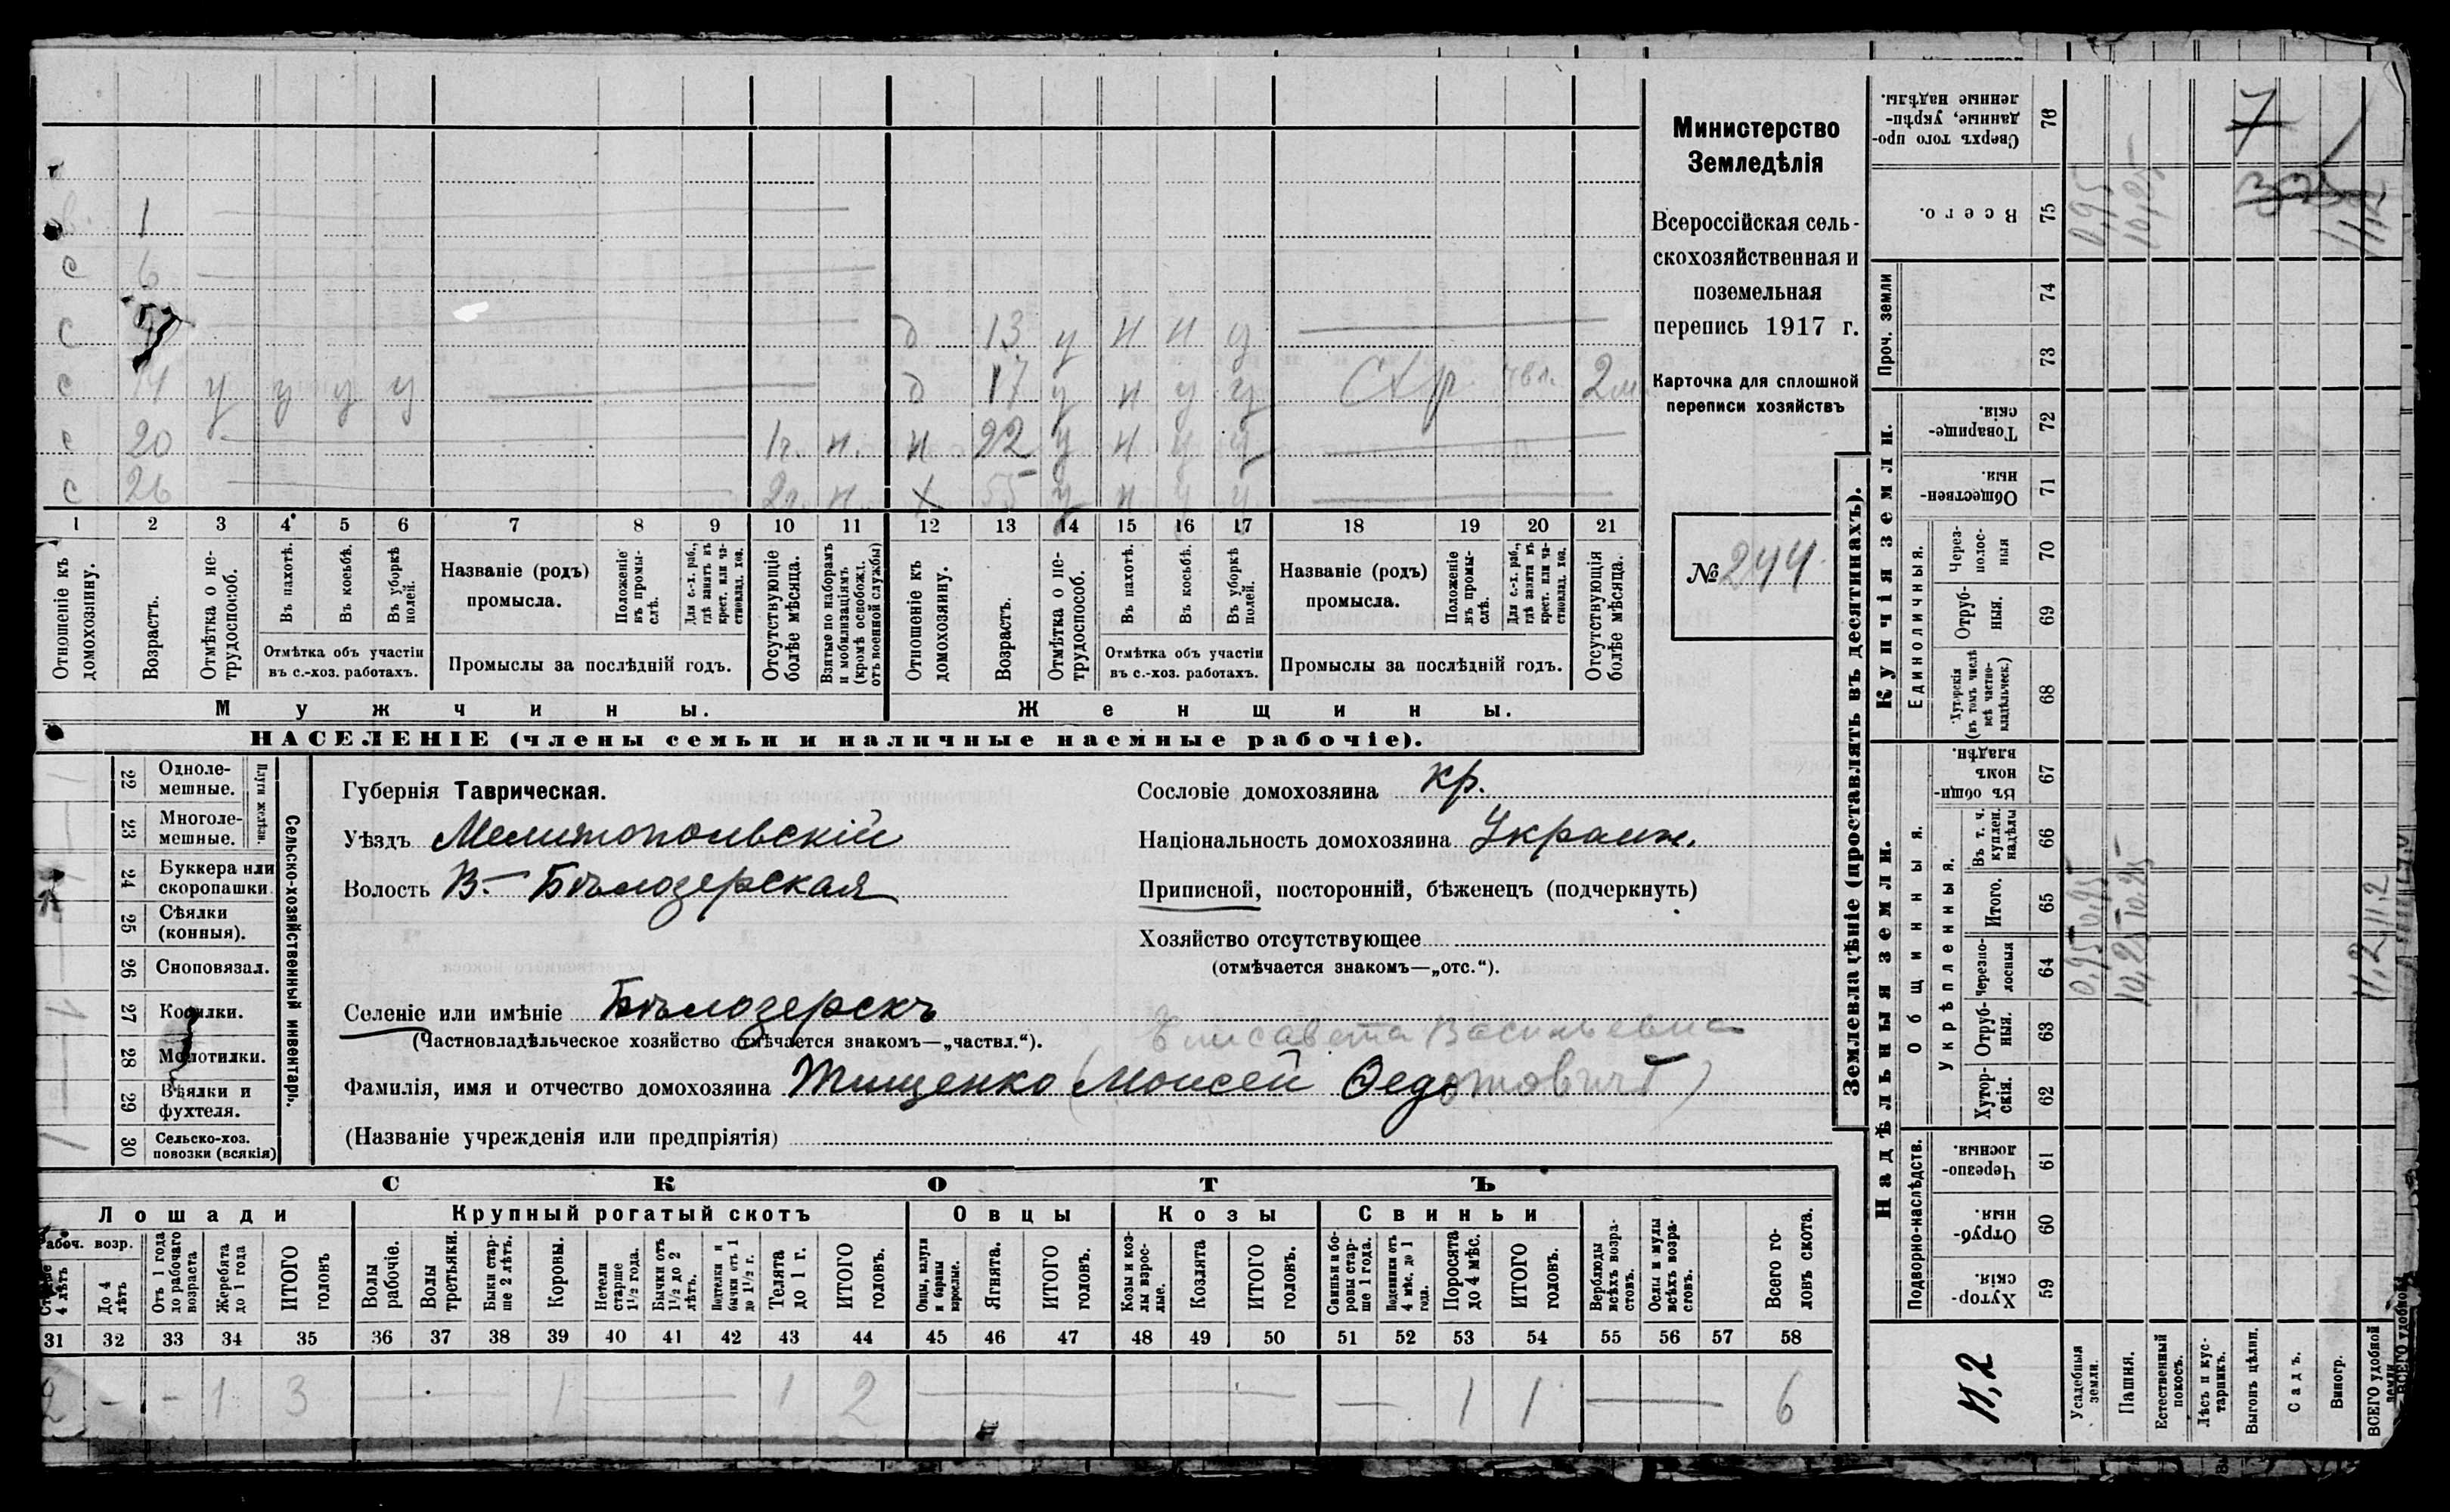 1
с 6
с д 13 у н н у
с 14 у у у у д 17 у н у у СХр 2 м.
с 20 1 г. н. н 22 у н у у
с 26 2 г. н. х 55 у н у у
1 2 3 4 5 6 7 8 9 10 11 12 13 14 15 16 17 18 19 20 21
Отношеніе къ домохозяину.
Возрастъ.
Отмѣтка о не-
трудоспособ.
Въ пахотѣ.
Въ косьбѣ.
Въ уборкѣ полей.
Отмѣтка объ участіи
въ с.-хоз. работахъ.
Названіе (родъ)
промысла.
Положеніе въ промы-
слѣ.
Для с.-х. раб., гдѣ занятъ въ крест. или ча-
стновлад. хоз.
Промыслы за послѣдній годъ.
Отсутствующіе болѣе мѣсяца.
Взятые по наборамъ и мобилизаціямъ (кромѣ освобожд. отъ военной службы)
Отношеніе къ домохозяину.
Возрастъ.
Отмѣтка о не-
трудоспособ.
Въ пахотѣ.
Въ косьбѣ.
Въ уборкѣ полей.
Отмѣтка объ участіи
въ с.-хоз. работахъ.
Названіе (родъ)
промысла.
Положеніе въ промы-
слѣ.
Для с.-х. раб., гдѣ занята въ крест. или ча-
стновлад. хоз.
Промыслы за послѣдній годъ.
Отсутствующія болѣе мѣсяца.
Мужчины. Женщины.
НАСЕЛЕНІЕ (члены семьи и наличные наемные рабочіе).
Министерство
Земледѣлія
Всероссійская сель-
скохозяйственная и
поземельная
перепись 1917 г.
Карточка для сплошной
переписи хозяйствъ
№ 244.
22 Одноле-
мешные.
23 Многоле-
мешные.
Плуги желѣзн.
24 Буккера или
скоропашки.
25 Сѣялки
(конныя).
26 Сноповязал.
27 Косилки.
28 Молотилки.
29 Вѣялки и
фухтеля.
30 Сельско-хоз.
повозки (всякія)
Сельско-хозяйственный инвентарь.
Губернія Таврическая.
Уѣздъ Мелитопольскій
Волость В.- Бѣлозерская
Сословіе домохозяина кр.
Національность домохозяина Украин.
Приписной, посторонній, бѣженецъ (подчеркнуть)
Хозяйство отсутствующее
(отмѣчается знакомъ—„отс.“).
Селеніе или имѣніе Бѣлозерскъ
(Частновладѣльческое хозяйство отмѣчается знакомъ—„частвл.“).
Елисавета Васильевна
Фамилія, имя и отчество домохозяина Тищенко (Моисей Федотовичъ)
(Названіе учрежденія или предпріятія)
СКОТЪ
Лошади Крупный рогатый скотъ Овцы Козы Свиньи
Рабоч. возр.
Старше 4 лѣтъ
До 4 лѣтъ
Отъ 1 года до рабочаго возраста
Жеребята до 1 года
ИТОГО головъ
Волы рабочіе.
Волы третьяки.
Быки стар-
ше 2 лѣтъ.
Коровы.
Нетели старше 1½ года.
Бычки отъ 1½ до 2 лѣтъ.
Подтелки и бычки отъ 1 до 1½ г.
Телята до 1 г.
ИТОГО головъ.
Овцы, валухи и бараны взрослые.
Ягнята.
ИТОГО головъ.
Козы и коз-
лы взрос-
лые.
Козлята
ИТОГО головъ.
Свиньи и бо-
ровы стар-
ше 1 года.
Подсвинки отъ 4 мѣс. до 1 года.
Поросята до 4 мѣс.
ИТОГО головъ.
Верблюды всѣхъ возра-
стовъ.
Ослы и мулы всѣхъ возра-
стовъ.
Всего го-
ловъ скота.
31 32 33 34 35 36 37 38 39 40 41 42 43 44 45 46 47 48 49 50 51 52 53 54 55 56 57 58
2 - - 1 3 — 1 — 1 2 — — 1 1 — 6
Землевладѣніе (проставлять въ десятинахъ).
Сверхъ того про-
данные, укрѣп-
ленные надѣлы. 76
7
Всего. 75
0,95 10,25 11,2
Проч. земли 74 73
Купчія земли.
Товарище-
скія. 72
Обществен-
ныя. 71
Единоличныя.
Через-
полос-
ныя 70
Отруб-
ныя. 69
Хуторскія
(въ томъ числѣ
всѣ частно-
владѣльческ.) 68
Надѣльныя земли.
Общинныя.
Въ общи-
номъ
владѣн. 67
Укрѣпленныя.
Въ т. ч.
куплен.
надѣлы 66
Итого. 65
0,95 10,25 11,2
Черезпо-
лосныя 64
0,95 10,25 11,2
Отруб-
ныя. 63
Хутор-
скія. 62
Подворно-наслѣдств.
Черезпо-
лосныя 61
Отруб-
ныя. 60
Хутор-
скія. 59
11,2
Усадебныя земли.
Пашня.
Естественный покосъ.
Лѣсъ и кус-
тарникъ.
Выгонъ цѣлин.
Садъ.
Виногр.
ВСЕГО удобной земли
ВСЕГО удобной